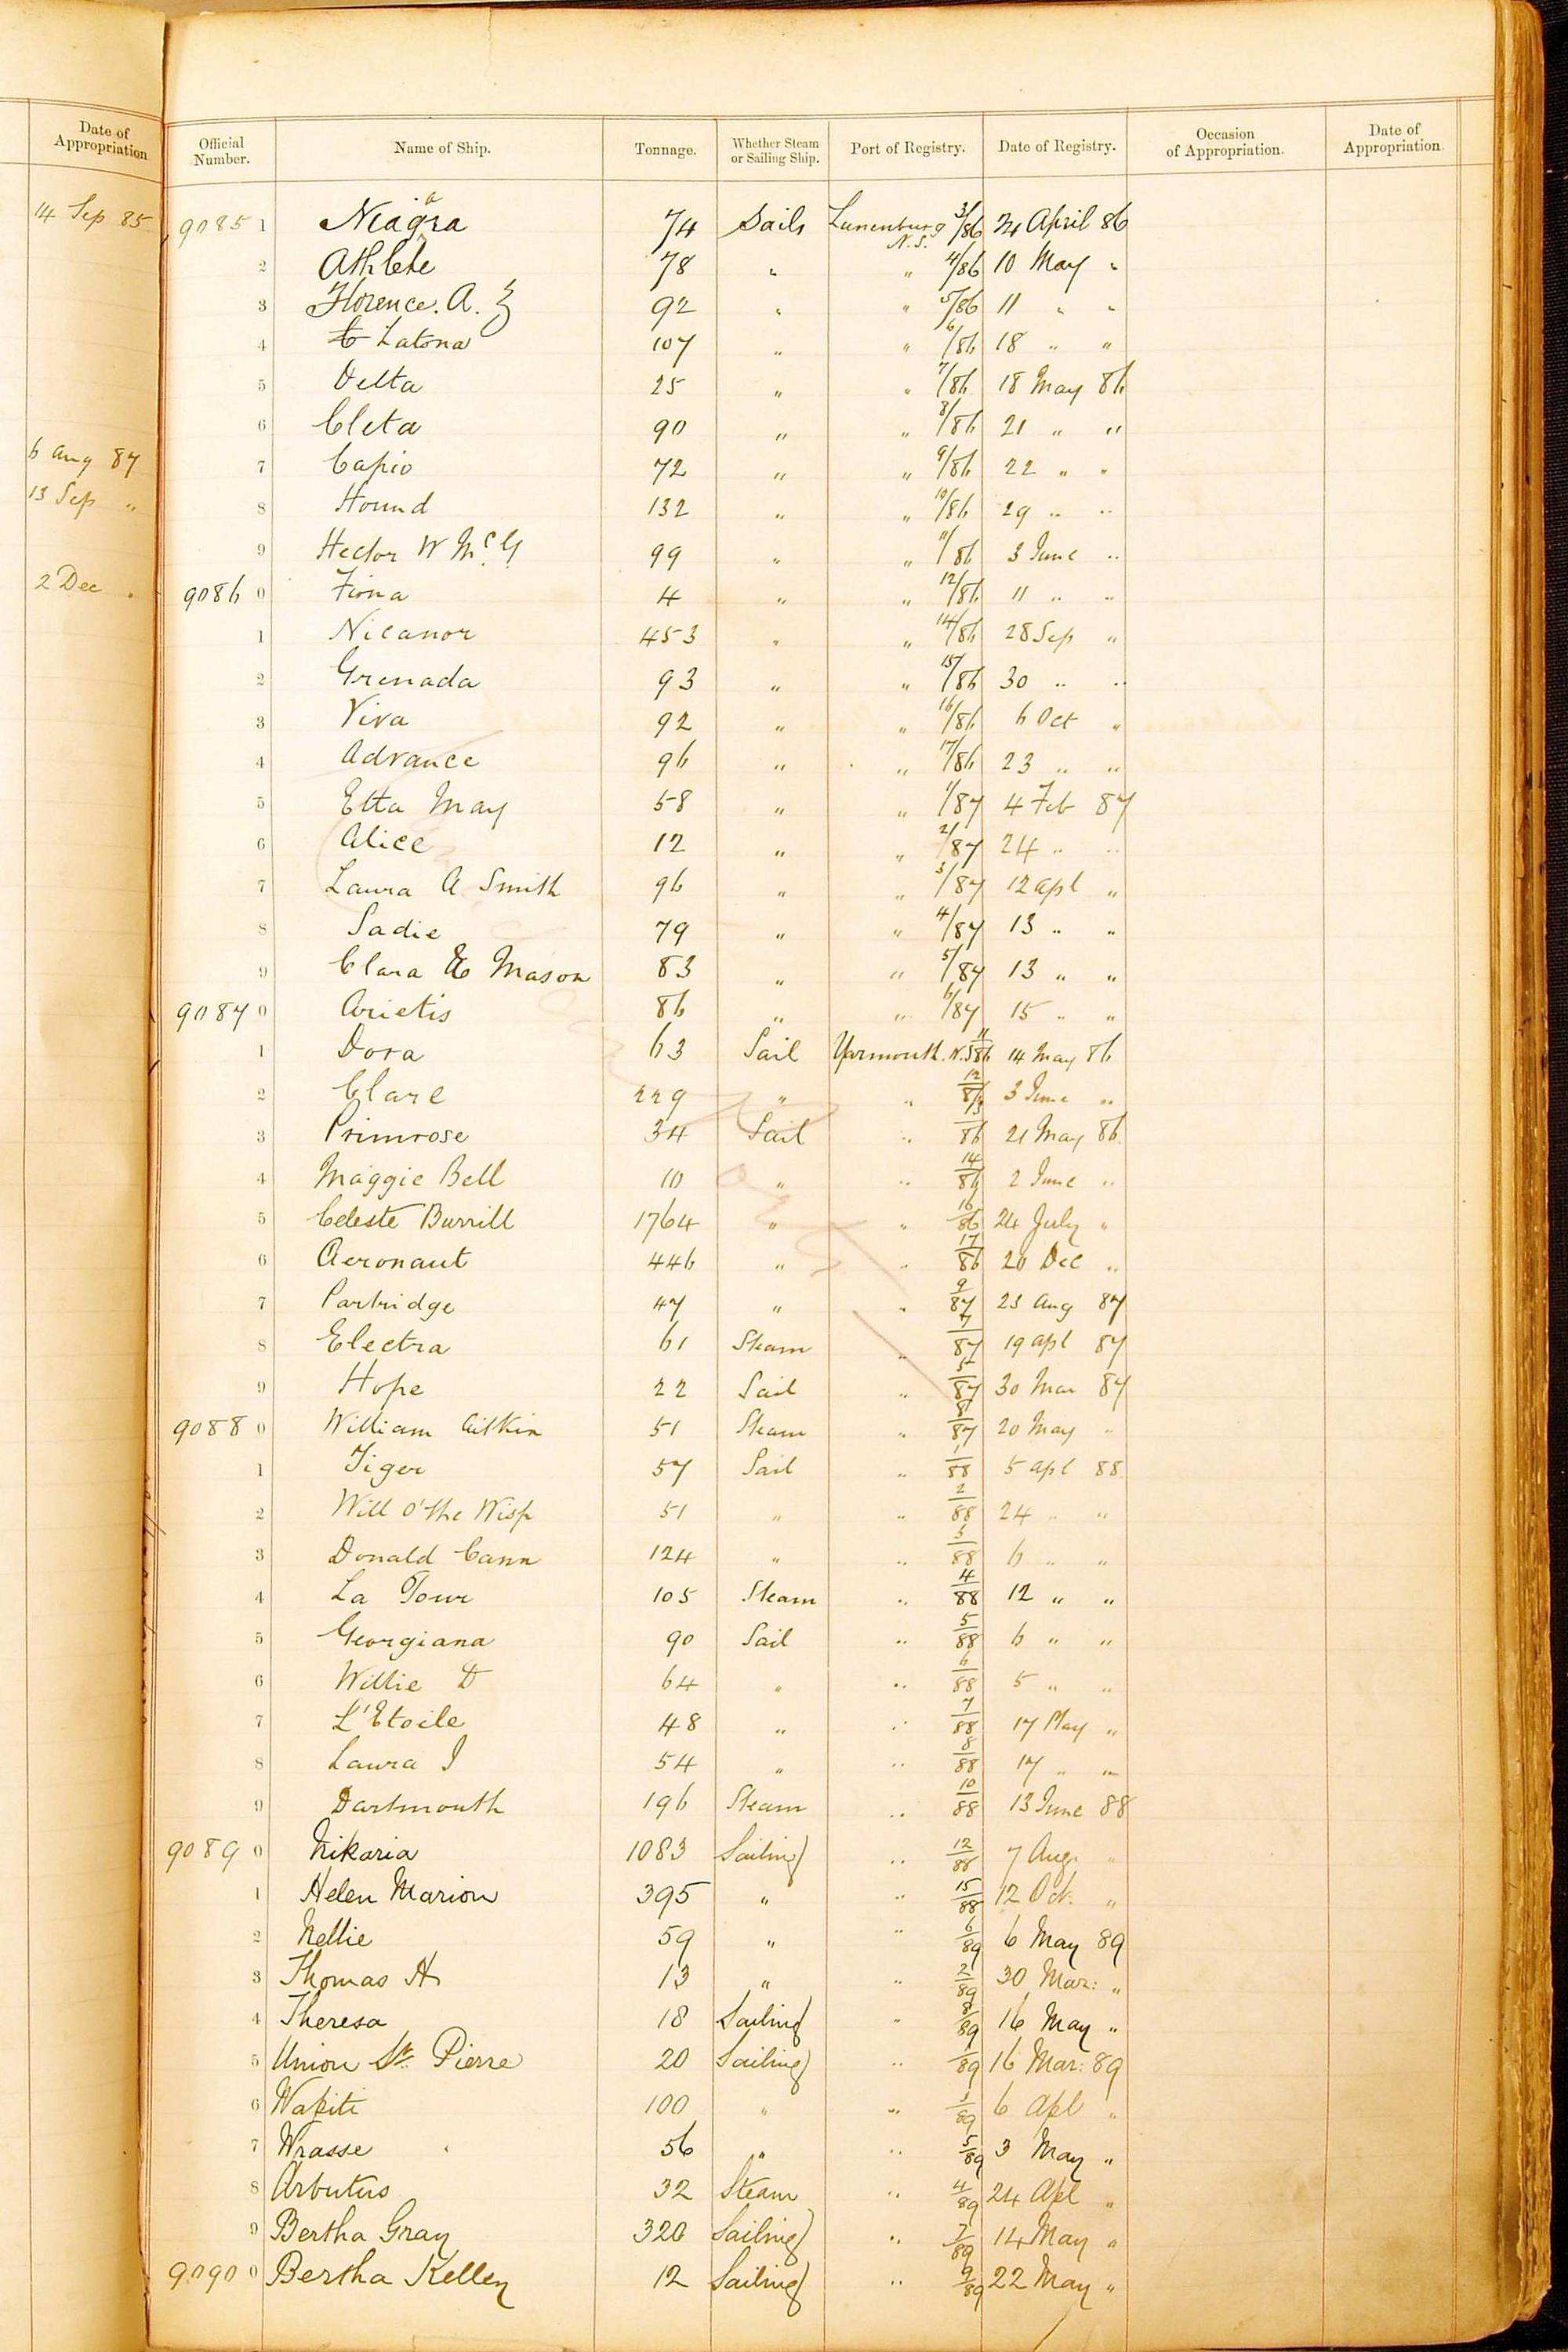 Date of Appropriation
14 Sep 85
6 Aug 87
13 Sep "
2 Dec "
Official Number. Name of Ship. Tonnage. Whether Steam or Sailing Ship. Port of Registry. Date of Registry. Occasion of Appropriation. Date of Appropriation.
9085 1 Niagara 74 Sails Lunenburg N.S. 3/86 24 April 86
2 Athlete 78 " " 4/86 10 May "
3 Florence. A. Z 92 " " 5/86 11 " "
4 Latona 107 " " 6/86 18 " "
5 Delta 25 " " 7/86 18 May 86
6 Cleta 90 " " 8/86 21 " "
7 Capio 72 " " 9/86 22 " "
8 Hound 132 " " 10/86 29 " "
9 Hector W McG 99 " " 11/86 3 June "
9086 0 Fiona 4 " " 12/86 11 " "
1 Nicanor 453 " " 14/86 28 Sep "
2 Grenada 93 " " 15/86 30 " "
3 Viva 92 " " 16/86 6 Oct "
4 Advance 96 " " 17/86 23 " "
5 Etta May 58 " " 1/87 4 Feb 87
6 Alice 12 " " 2/87 24 " "
7 Laura A Smith 96 " " 3/87 12 Apl "
8 Sadie 79 " " 4/87 13 " "
9 Clara E Mason 83 " " 5/87 13 " "
9087 0 Arietis 86 " " 6/87 15 " "
1 Dora 63 Sail Yarmouth. N.S 11/86 14 May 86
2 Clare 229 " " 12/86 3 June "
3 Primrose 34 Sail " 13/86 21 May 86.
4 Maggie Bell 10 " " 14/86 2 June "
5 Celeste Burrill 1764 " " 16/86 24 July "
6 Aeronaut 446 " " 17/86 20 Dec "
7 Partridge 47 " " 9/87 23 Aug 87
8 Electra 61 Steam " 7/87 19 Apl 87
9 Hope 22 Sail " 5/87 30 Mar 87
9088 0 William Aitkin 51 Steam " 8/87 20 May "
1 Tiger 57 Sail " 1/88 5 Apl 88.
2 Will O'the Wisp 51 " " 2/88 24 " "
3 Donald Cann 124 " " 3/88 6 " "
4 La Tour 105 Steam " 4/88 12 " "
5 Georgiana 90 Sail " 5/88 6 " "
6 Willie D 64 " " 6/88 5 " "
7 L'Etoile 48 " " 7/88 17 May "
8 Laura J 54 " " 8/88 17 " "
9 Dartmouth 196 Steam " 10/88 13 June 88
9089 0 Nikaria 1083 Sailing " 12/88 7 Aug. "
1 Helen Marion 395 " " 15/88 12 Oct. "
2 Nellie 59 " " 6/89 6 May 89
3 Thomas H 13 " " 2/89 30 Mar: "
4 Theresa 18 Sailing " 8/89 16 May "
5 Union St. Pierre 20 Sailing " 1/89 16 Mar: 89
6 Wapiti 100 " " 3/89 6 Apl "
7 Wrasse 56 " " 5/89 3 May "
8 Arbutus 32 Steam " 4/89 24 Apl "
9 Bertha Gray 320 Sailing " 7/89 14 May "
9090 0 Bertha Kelley 12 Sailing " 9/89 22 May "